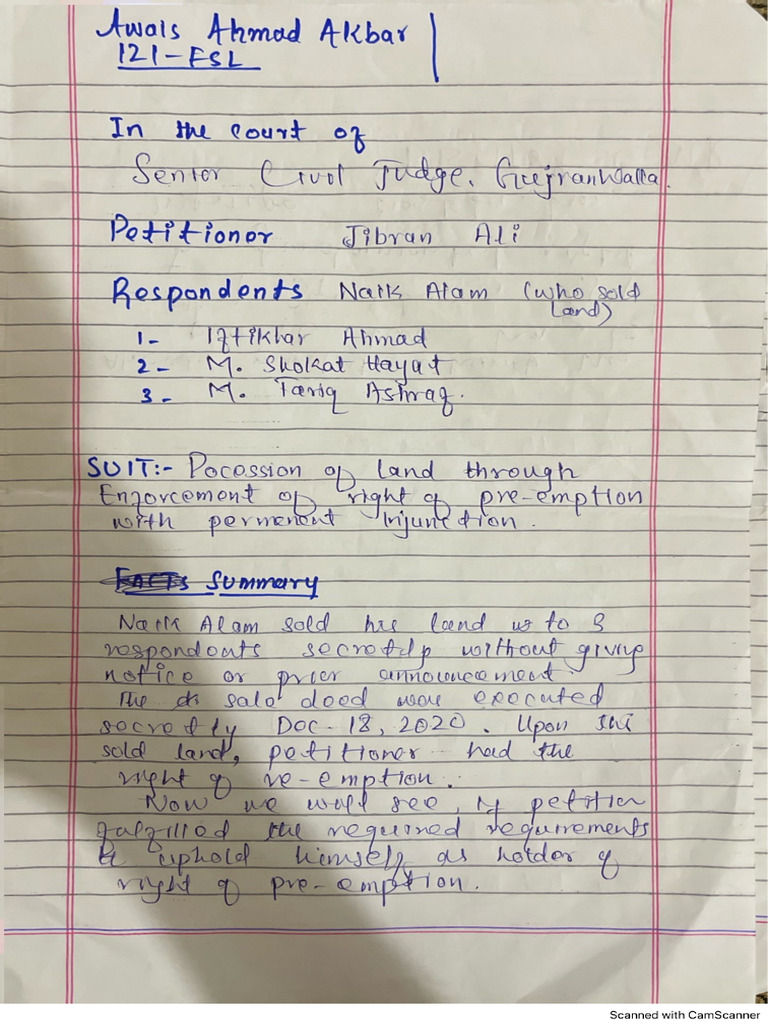 Awais Ahmad Akbar
121-FSL
In the court of
Senior Civil Judge, Gujranwalla.
Petitioner Jibran Ali
Respondents Naik Alam (who sold
land)
1- Iftikhar Ahmad
2- M. Shokat Hayat
3- M. Tariq Ashraf.
SUIT:- Pocession of land through
Enforcement of right of pre-emption
with permenent Injunction.
FACTS Summary
Naik Alam sold his land to 3
respondents secretly without giving
notice or prior announcement.
The sale deed was executed
secretly Dec-18, 2020. Upon this
sold land, petitioner had the
right of re-emption.
Now we will see, if petition
fulfilled the required requirements
& uphold himself as holder of
right of pre-emption.
Scanned with CamScanner